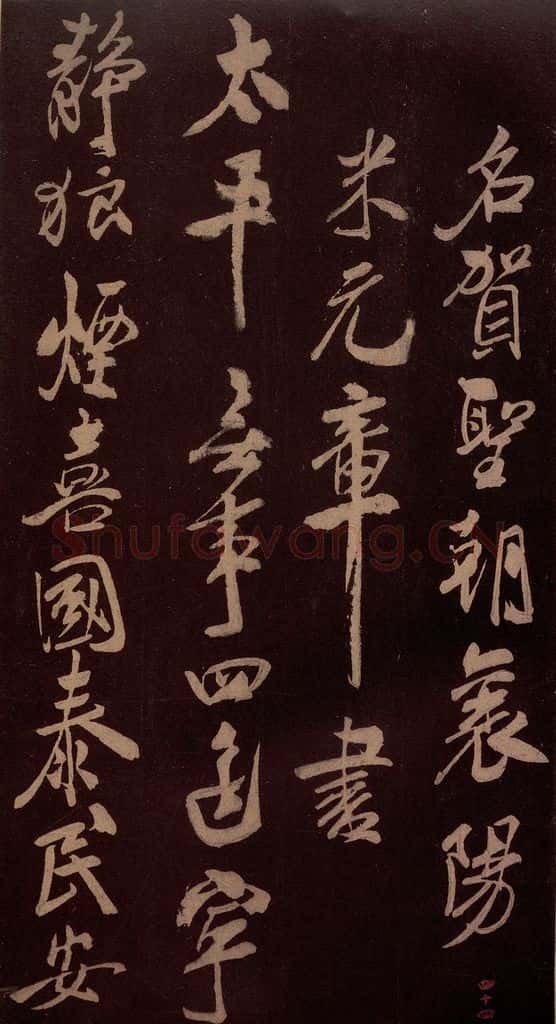 名賀聖朝襄陽
米元章書
太平無事四邊寧
靜狼煙喜國泰民安
四十四
Shufawang.CN